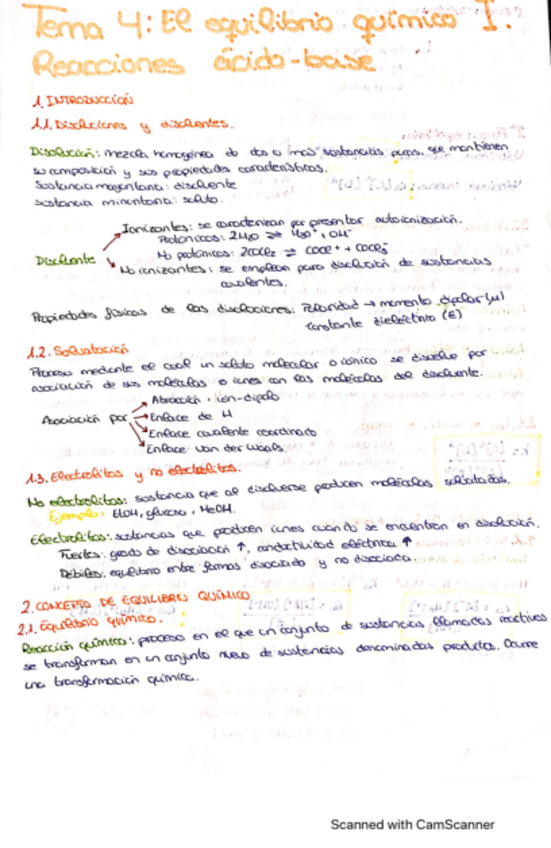 Tema 4: El equilibrio químico I.
Reacciones ácido-base
1. INTRODUCCIÓN
1.1. Disoluciones y disolventes.
Disolución: mezcla homogénea de dos o más sustancias puras, que mantienen
su composición y sus propiedades características.
Sustancia mayoritaria: disolvente
sustancia minoritaria: soluto.
Disolvente
Ionizantes: se caracterizan por presentar autoionización.
Protonicos: 2H2O ⇌ H3O+ + OH-
No protónicos: 2COCl2 ⇌ COCl+ + COCl3-
No ionizantes: se emplean para disolución de sustancias
covalentes.
Propiedades físicas de las disoluciones: Polaridad → momento dipolar (μ)
Constante dieléctrica (E)
1.2. Solvatación
Proceso mediante el cual un soluto molecular o iónico se disuelve por
asociación de sus moléculas o iones con las moléculas del disolvente.
Asociación por
Atracción ion-dipolo
Enlace de H
Enlace covalente coordinado
Enlace Van der Waals
1.3. Electrolitos y no electrolitos.
No electrolitos: sustancia que al disolverse producen moléculas solvatadas.
Ejemplo: EtOH, glucosa, MeOH.
Electrolitos: sustancias que producen iones cuando se encuentran en disolución.
Fuertes: grado de disociación ↑, conductividad eléctrica ↑
Débiles: equilibrio entre formas disociada y no disociada.
2. CONCEPTO DE EQUILIBRIO QUÍMICO
2.1. Equilibrio químico.
Reacción química: proceso en el que un conjunto de sustancias llamadas reactivos
se transforman en un conjunto nuevo de sustancias denominadas productos. Ocurre
una transformación química.
Scanned with CamScanner